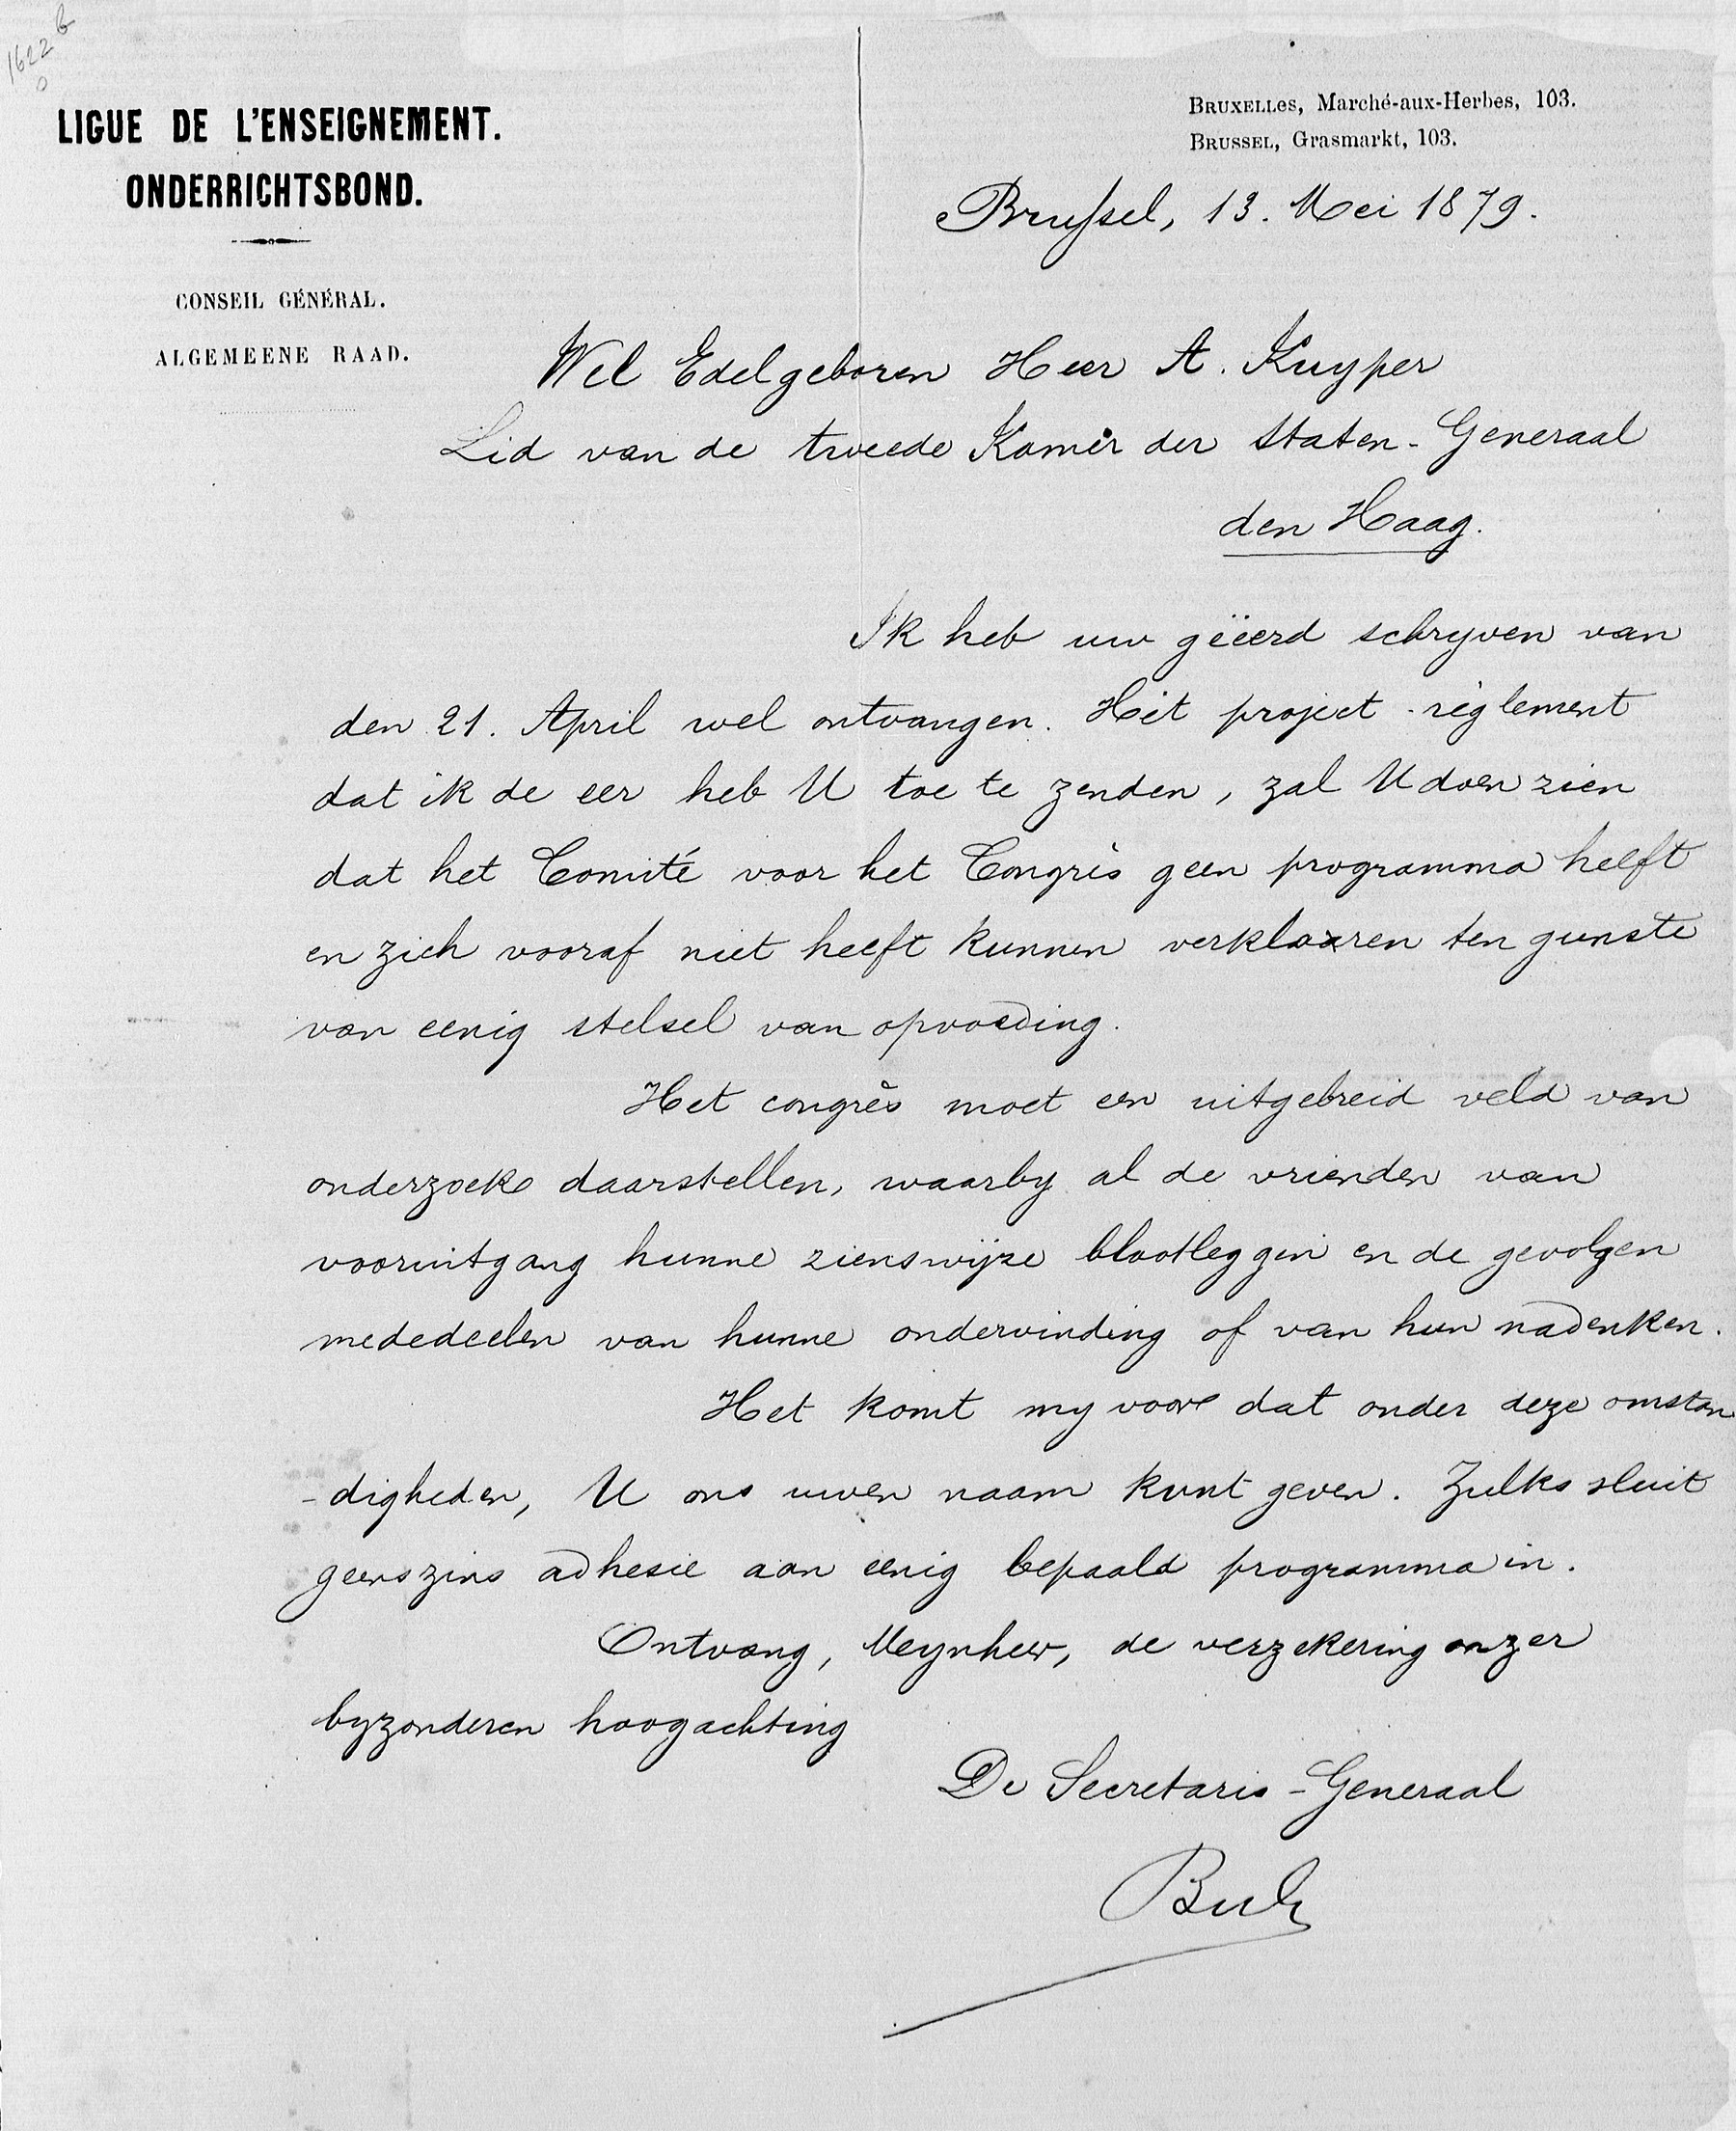 1622 b
LIGUE DE L'ENSEIGNEMENT.
ONDERRICHTSBOND.
CONSEIL GÉNÉRAL.
ALGEMEENE RAAD.
BRUXELLES, Marché-aux-Herbes, 103.
BRUSSEL, Grasmarkt, 103.
Brussel, 13. Mei 1879.
Wel Edelgeboren Heer A. Kuyper
Lid van de tweede Kamer der Staten-Generaal
den Haag.
Ik heb uw geëerd schryven van
den 21. April wel ontvangen. Het project-règlement
dat ik de eer heb U toe te zenden, zal U doen zien
dat het Comité voor het Congrès geen programma heeft
en zich vooraf niet heeft kunnen verklaren ten gunste
van eenig stelsel van opvoeding.
Het congrès moet een uitgebreid veld van
onderzoek daarstellen, waarby al de vrienden van
vooruitgang hunne zienswijze blootleggen en de gevolgen
mededeelen van hunne ondervinding of van hun nadenken.
Het komt my voor dat onder deze omstan
-digheden, U ons uwen naam kunt geven. Zulks sluit
geenszins adhesie aan eenig bepaald programma in.
Ontvang, Mynheer, de verzekering onzer
byzonderen hoogachting
De Secretaris-Generaal
Buls